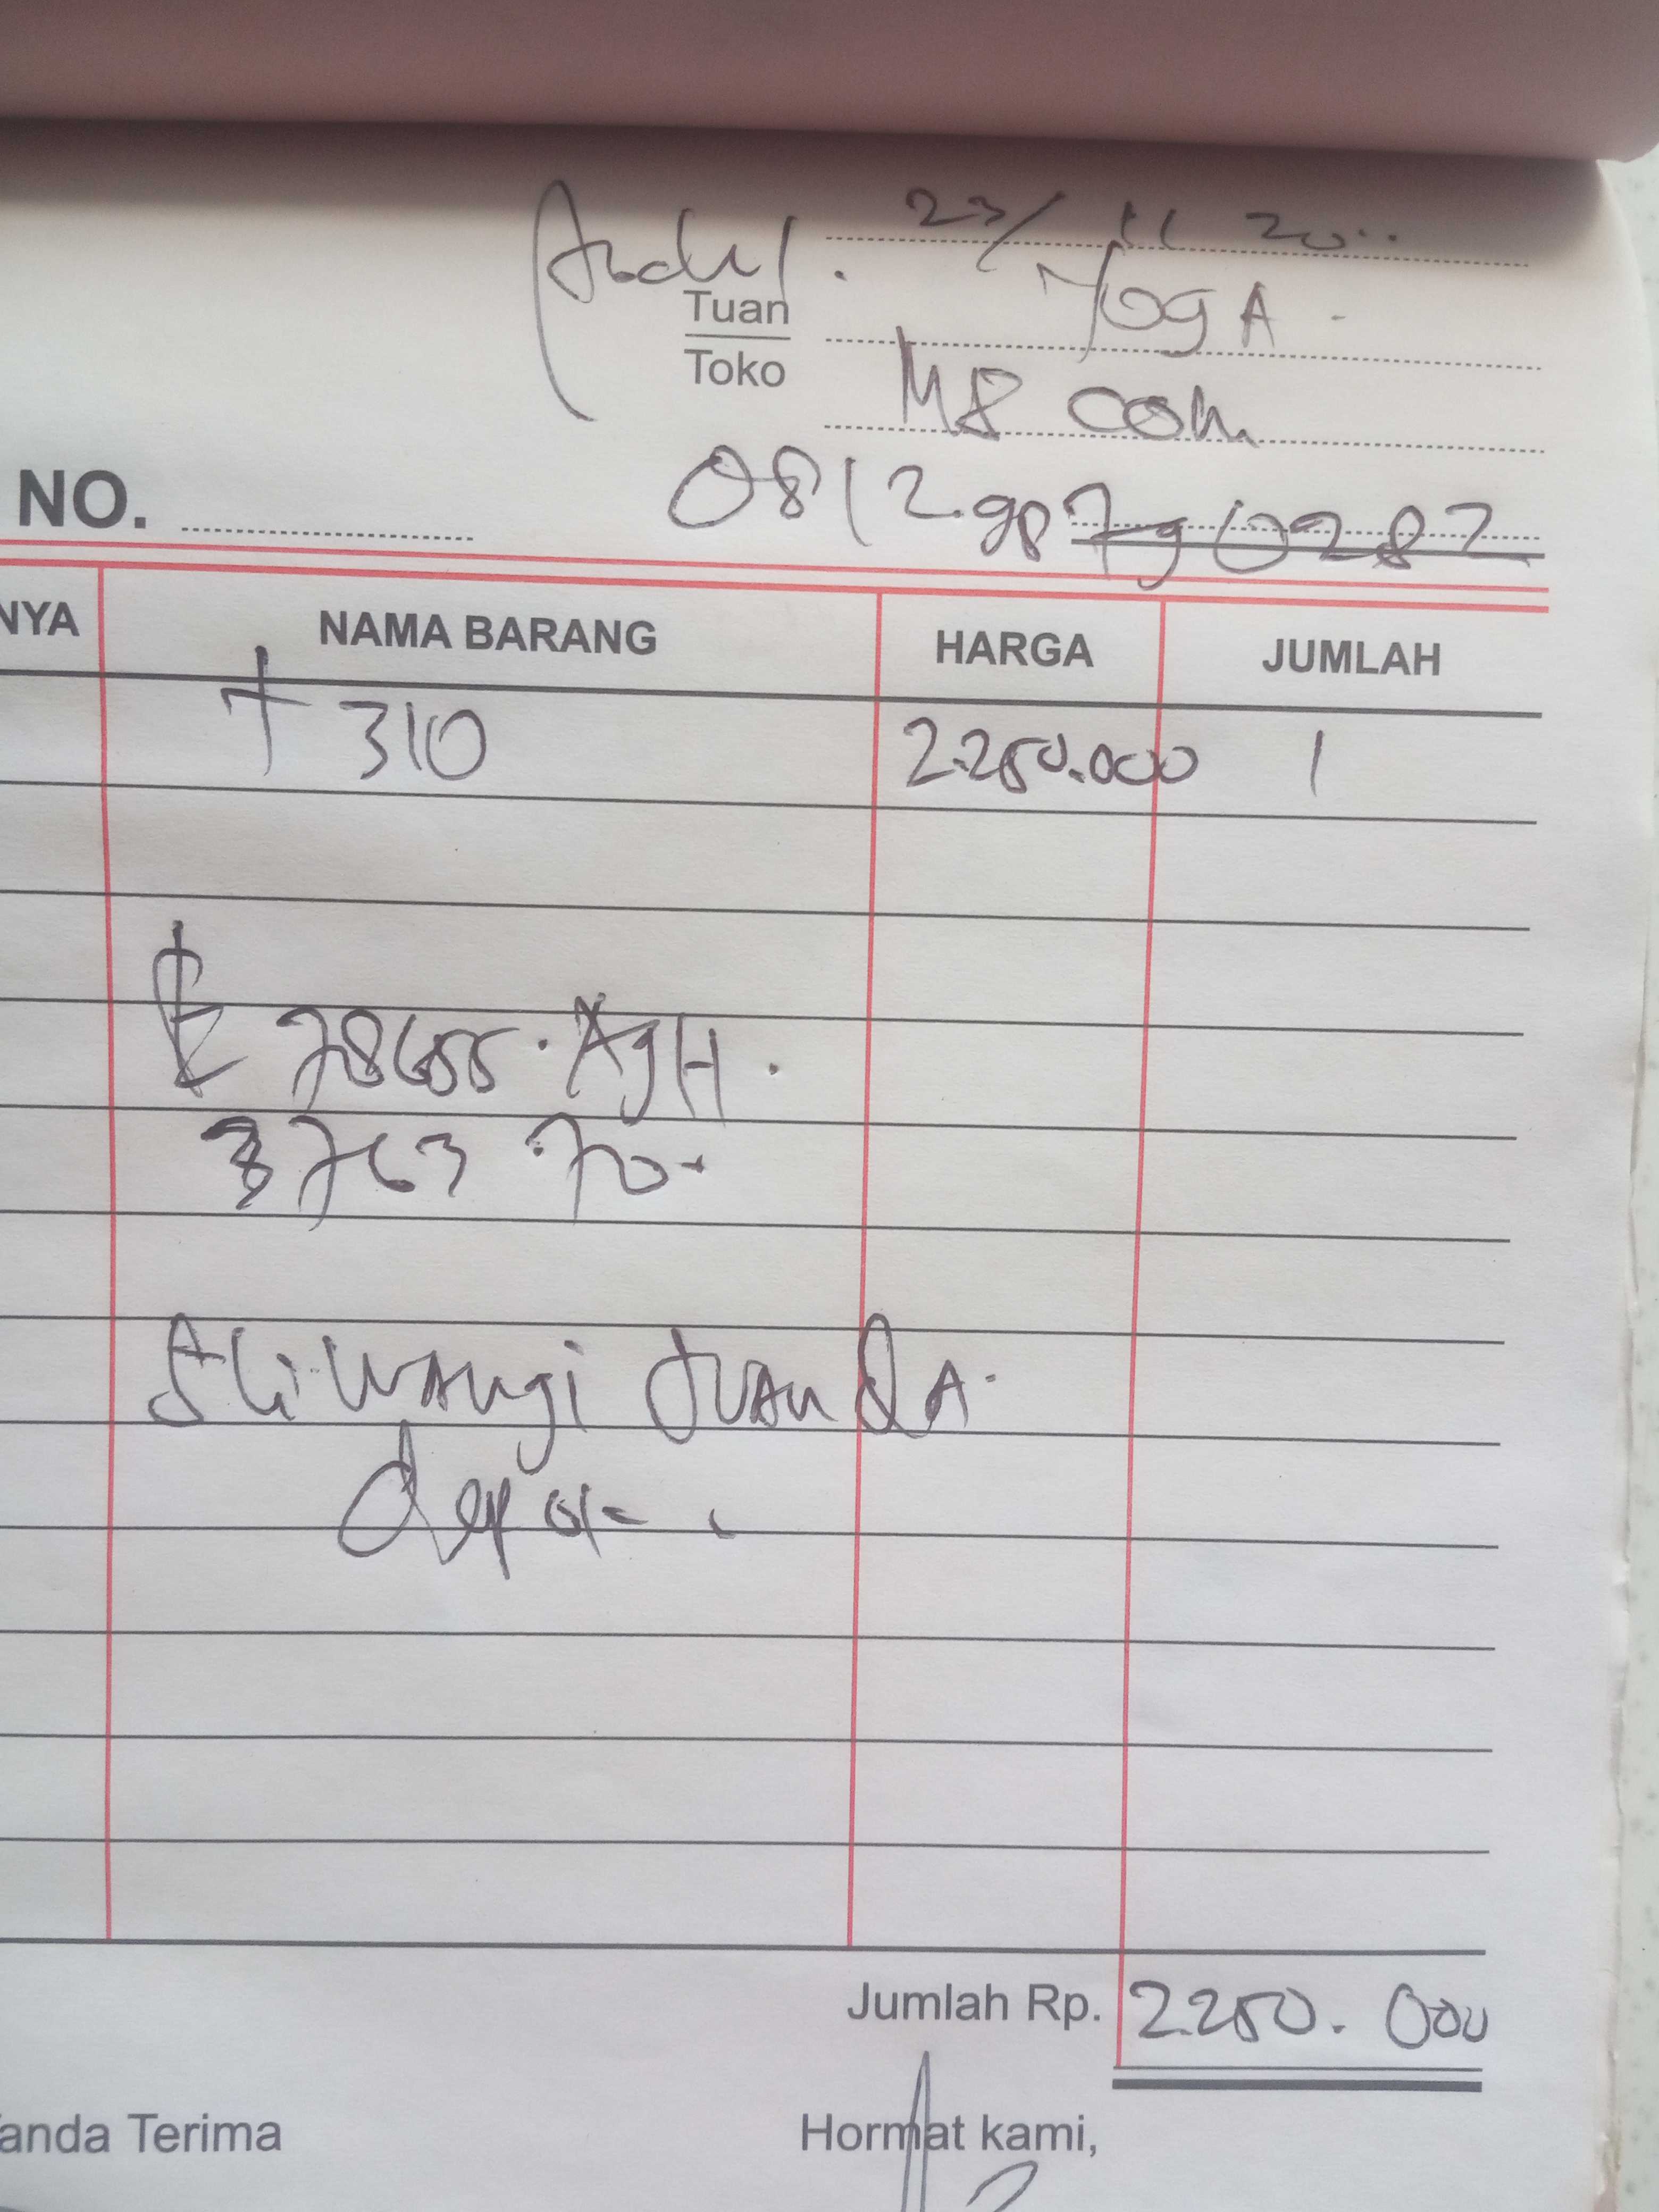 23/ 11 20..
Tuan YogA.
Toko M8 com
NO. 0812.9878 0282
NYA NAMA BARANG HARGA JUMLAH
T 310 2.250.000 1
78655.
3763 70.
Sliwangi JuandA.
depok
Jumlah Rp. 2.250.000
anda Terima Hormat kami,